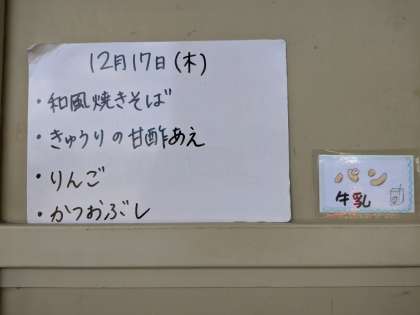 12月17日(木)
・和風焼きそば
・きゅうりの甘酢あえ
・りんご
・かつおぶし
パン
牛乳